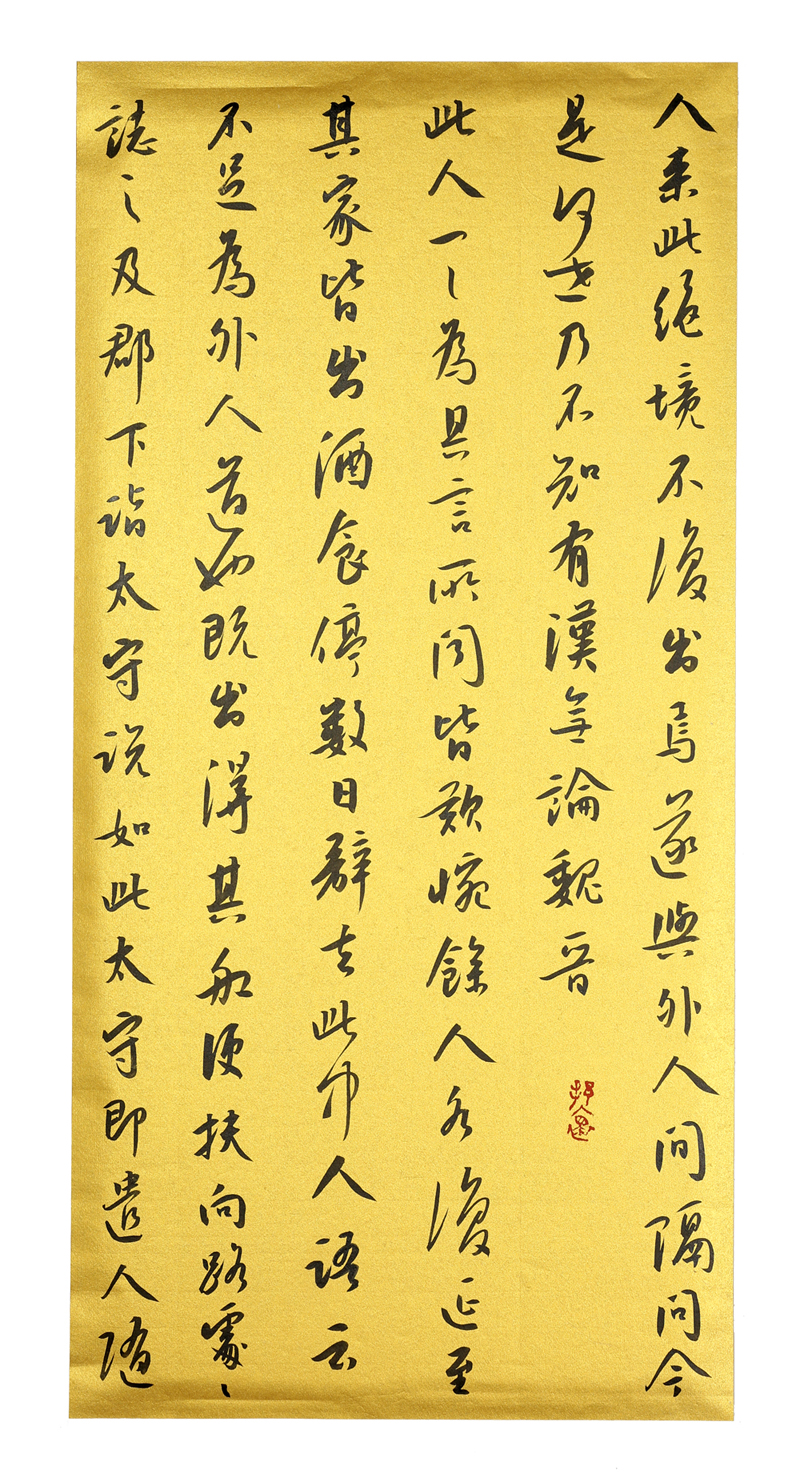 人來此絕境不復出焉遂與外人間隔問今
是何世乃不知有漢無論魏晉
此人一一為具言所聞皆歎惋餘人各復延至
其家皆出酒食停數日辭去此中人語云
不足為外人道也既出得其船便扶向路處〻
誌之及郡下詣太守說如此太守即遣人隨